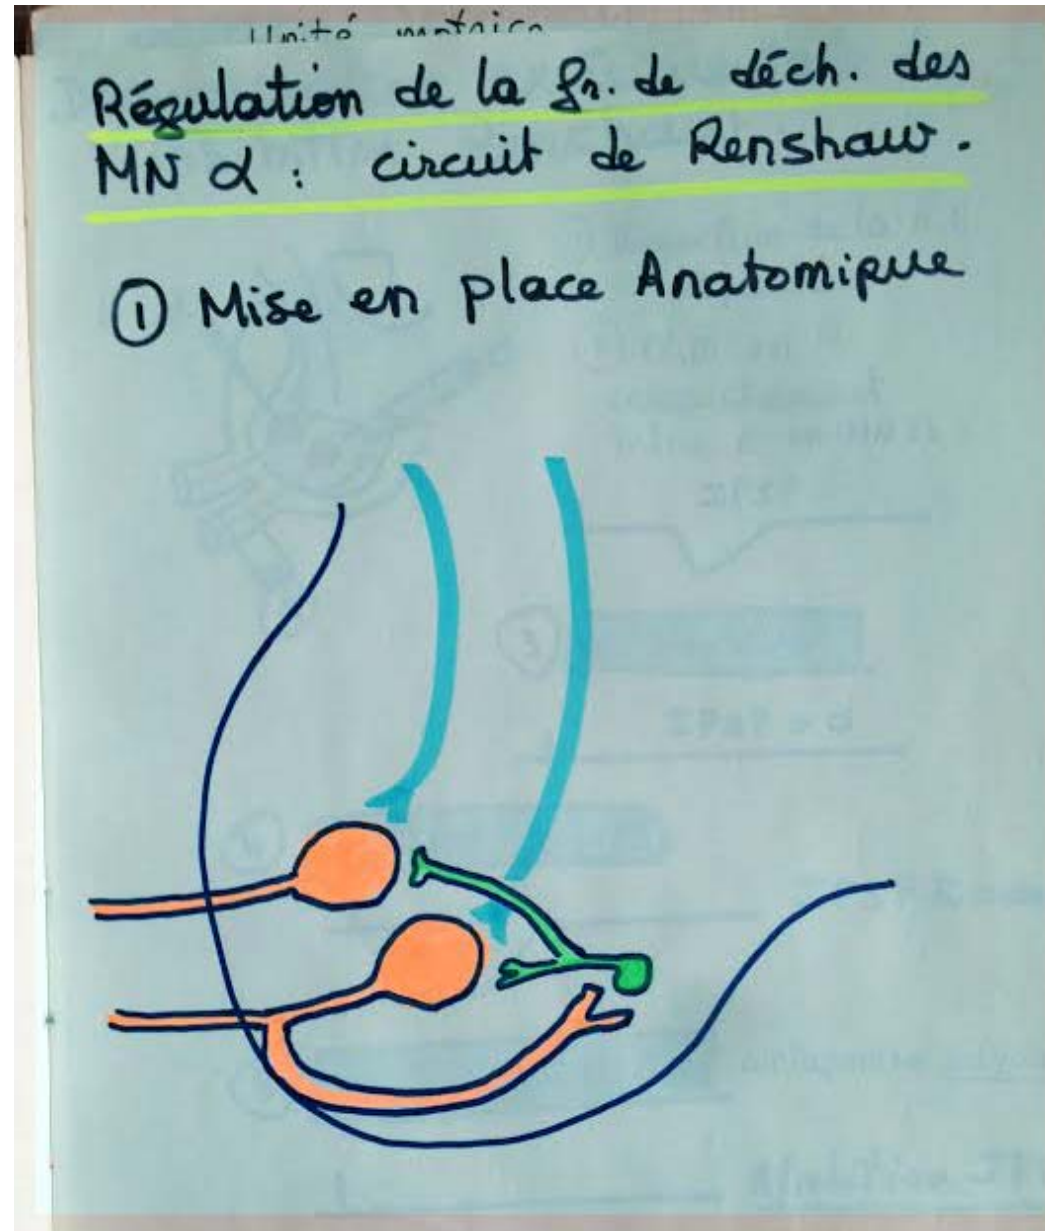 Unité motrice
Régulation de la fr. de déch. des
MN α : circuit de Renshaw.
① Mise en place Anatomique